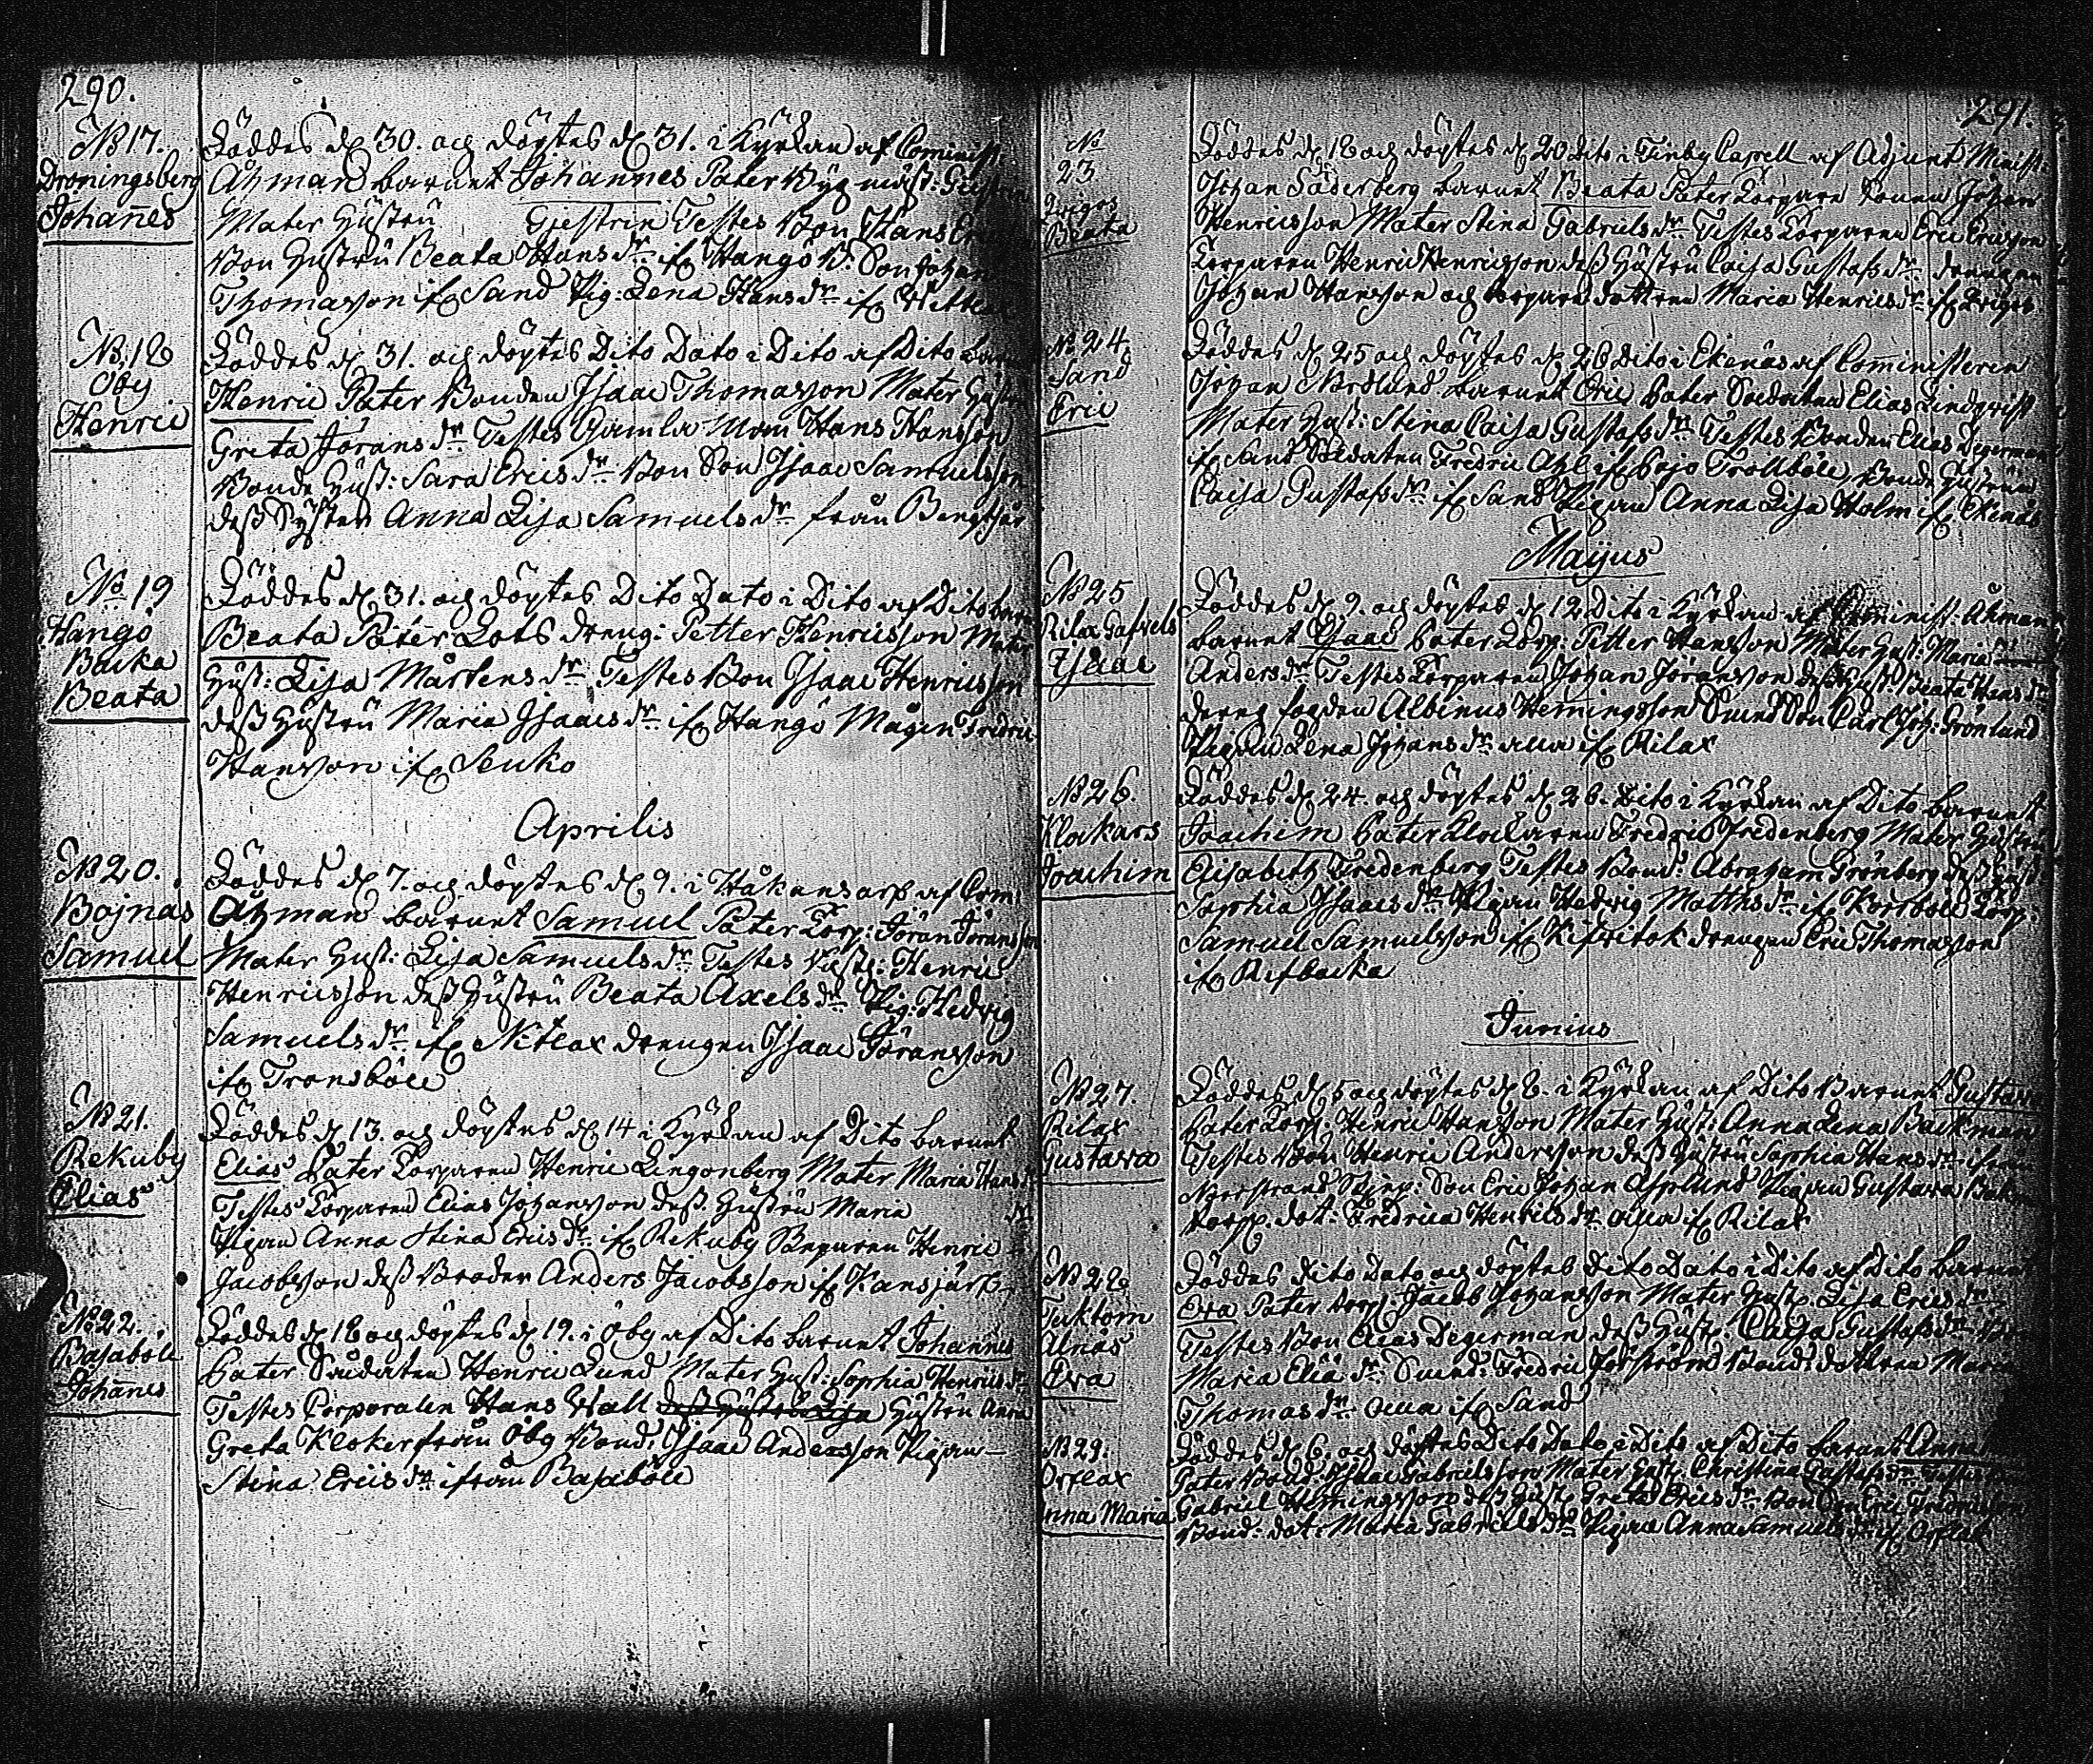 290.
No 17.
Droningsberg
Johannes
Föddes d. 30. och döptes d. 31. i Kyrkan af Cominist
Åhman barnet Johannes Pater
Mater Hustru Gjestrin Testes Bon Hans
Bon Hustru Beata Hansdr. if. Hangö B. Son Johan
Thomasson if. Sand Pig: Lena Hansdr. if.
No. 18
Öby
Henric
Föddes d. 31. och döptes Dito Dato i Dito af Dito barnet
Henric Pater Bonden Isaac Thomasson Mater Hustru
Greta Jöransdr. Testes Gamla Mom Hans Hansson
Bonde Hust: Sara Ericsdr. Bon Son Isaac Samuelsson
dess Syster Anna Lisa Samuelsdr. från
No. 19
Hangö
Backa
Beata
Föddes d. 31. och döptes Dito Dato i Dito af Dito barn
Beata Pater Lots dreng: Petter Henricsson Mater
Hust: Lisa Mårtensdr. Testes Bon Isaac Henricsson
dess Hustru Maria Isaacsdr. if. Hangö Mågen Fredric
Hansson if.
Aprilis
No 20.
Bojnäs
Samuel
Föddes d. 7. och döptes d. 9. i Håkansarf af Com:
Åhman barnet Samuel Pater Torp: Jöran Jöransson
Mater Hust: Lisa Samuelsdr. Testes Henric
Henricsson dess Hustru Beata Axelsdr. Pig: Hedvig
Samuelsdr. if. Nitlax drengen Isaac Göransson
if. Transböle
No 21.
Rekuby
Elias
Föddes d. 13. och döptes d. 14 i Kyrkan af Dito barnet
Elias Pater Torparen Henric Lingonberg Mater Maria Hansdr.
Testes Torparen Elias Johansson dess Hustru Maria dr
Pigan Anna Stina Ericsdr. if. Rekuby Torparen Henric
Jacobsson dess Broder Anders Jacobsson if. Kansjärf
No 22.
Basaböle
Johannes
Föddes d. 18 och döptes d. 19. i Öby af Dito barnet Johannes
Pater Soldaten Henric Lund Mater Hust: Sophia Henricsdr.
Testes Corporalen Hans Wall dess Hustru Lisa Hustru Anna
Greta Kloker från Öby Bond: Isaac Andersson Pigan
Stina Ericsdr. ifrån Basaböle
291.
No
23
Beata
Föddes d. 18 och döptes d. 20 Dito i Tenby Capell af Adjunct Minist:
Johan Söderberg barnet Beata Pater Torpare Sonen Johan
Henricsson Mater Stina Gabrielsdr. Testes Torparen Eric Ericsson
Torparen Henric Henricsson dess Hustru Caisa Gustafsdr. drengen
Johan Hansson och torpare dottren Maria Henricsdr. if.
No 24
Sand
Eric
Föddes d. 25 och döptes d. 26 Dito i Ekenäs af Comministern
Johan Nordlund barnet Eric Pater Soldaten Elias Lindqvist
Mater Hust: Stina Caisa Gustafsdr. Testes Bonden Elias Degerman
if. Sand Soldaten Fredric if. Trollböle, Bonde Hustrun
Caisa Gustafsdr. if. Sand Pigan Anna Lisa Holm if. Ekenäs
Majus
No 25
Rilax
Isaac
Föddes d. 9. och döptes d. 12 Dito i Kyrkan af Cominist: Åhman
barnet Isaac Pater Torp: Petter Hansson Mater Hust: Maria
Andersdr. Testes Torparen Johan Jöransson dess Hust: Beata Hansdr.
dreng fogden Albinus Hemingsson Carl Joh: Grönlund
Pigan Lena Johansdr. alla if. Rilax
No 26.
Klockars
Joachim
Föddes d. 24. och döptes d. 26. Dito i Kyrkan af Dito barnet
Joachim Pater Klockaren Fredric Fredenberg Mater Hustru
Elisabeth Fredenberg Testes Bond: Abraham Grönberg dess Hust:
Sophia Isaacsdr. Pigan Hedvig Matthsdr. if. Korsböle Torp:
Samuel Samuelsson if. drengen Eric Thomasson
if. Refbacka
Junius
No 27.
Rilax
Gustava
Föddes d. 5 och döptes d. 6. i Kyrkan af Dito Barnet Gustava
Pater Torp: Henric Hansson Mater Hust: Anna Lena Backman
Testes Bon Henric Andersson dess Hustru Sophia Hansdr. ifrån
Norstrand Son Eric Johan Asplund Pigan Gustava
torp. dot: Fredrica Henricsdr. alla if. Rilax
No 28
Tuktom
Alnäs
Eva
Föddes Dito Dato och döptes Dito Dato i Dito af Dito barnet
Eva Pater torp: Jacob Johansson Mater Hust: Lisa Ericsdr.
Testes Bon Elias Degerman dess Hust: Caisa Gustafsdr.
Maria Eliædr. Fredric Bond: dottren Maria
Thomasdr. alla if. Sand
No 29.
Orslax
Anna Maria
Föddes d. 6. och döptes Dito Dato i Dito af Dito barnet Anna
Pater Bond: Isaac Gabrielsson Mater Hust: Christina Gustafsdr. Testes
Gabriel Hemingsson dess Hust: Greta Ericsdr. Bon Son Eric
Bond: dot: Maria Gabrielsdr. Pigan Anna Samuelsdr. if. Orslax